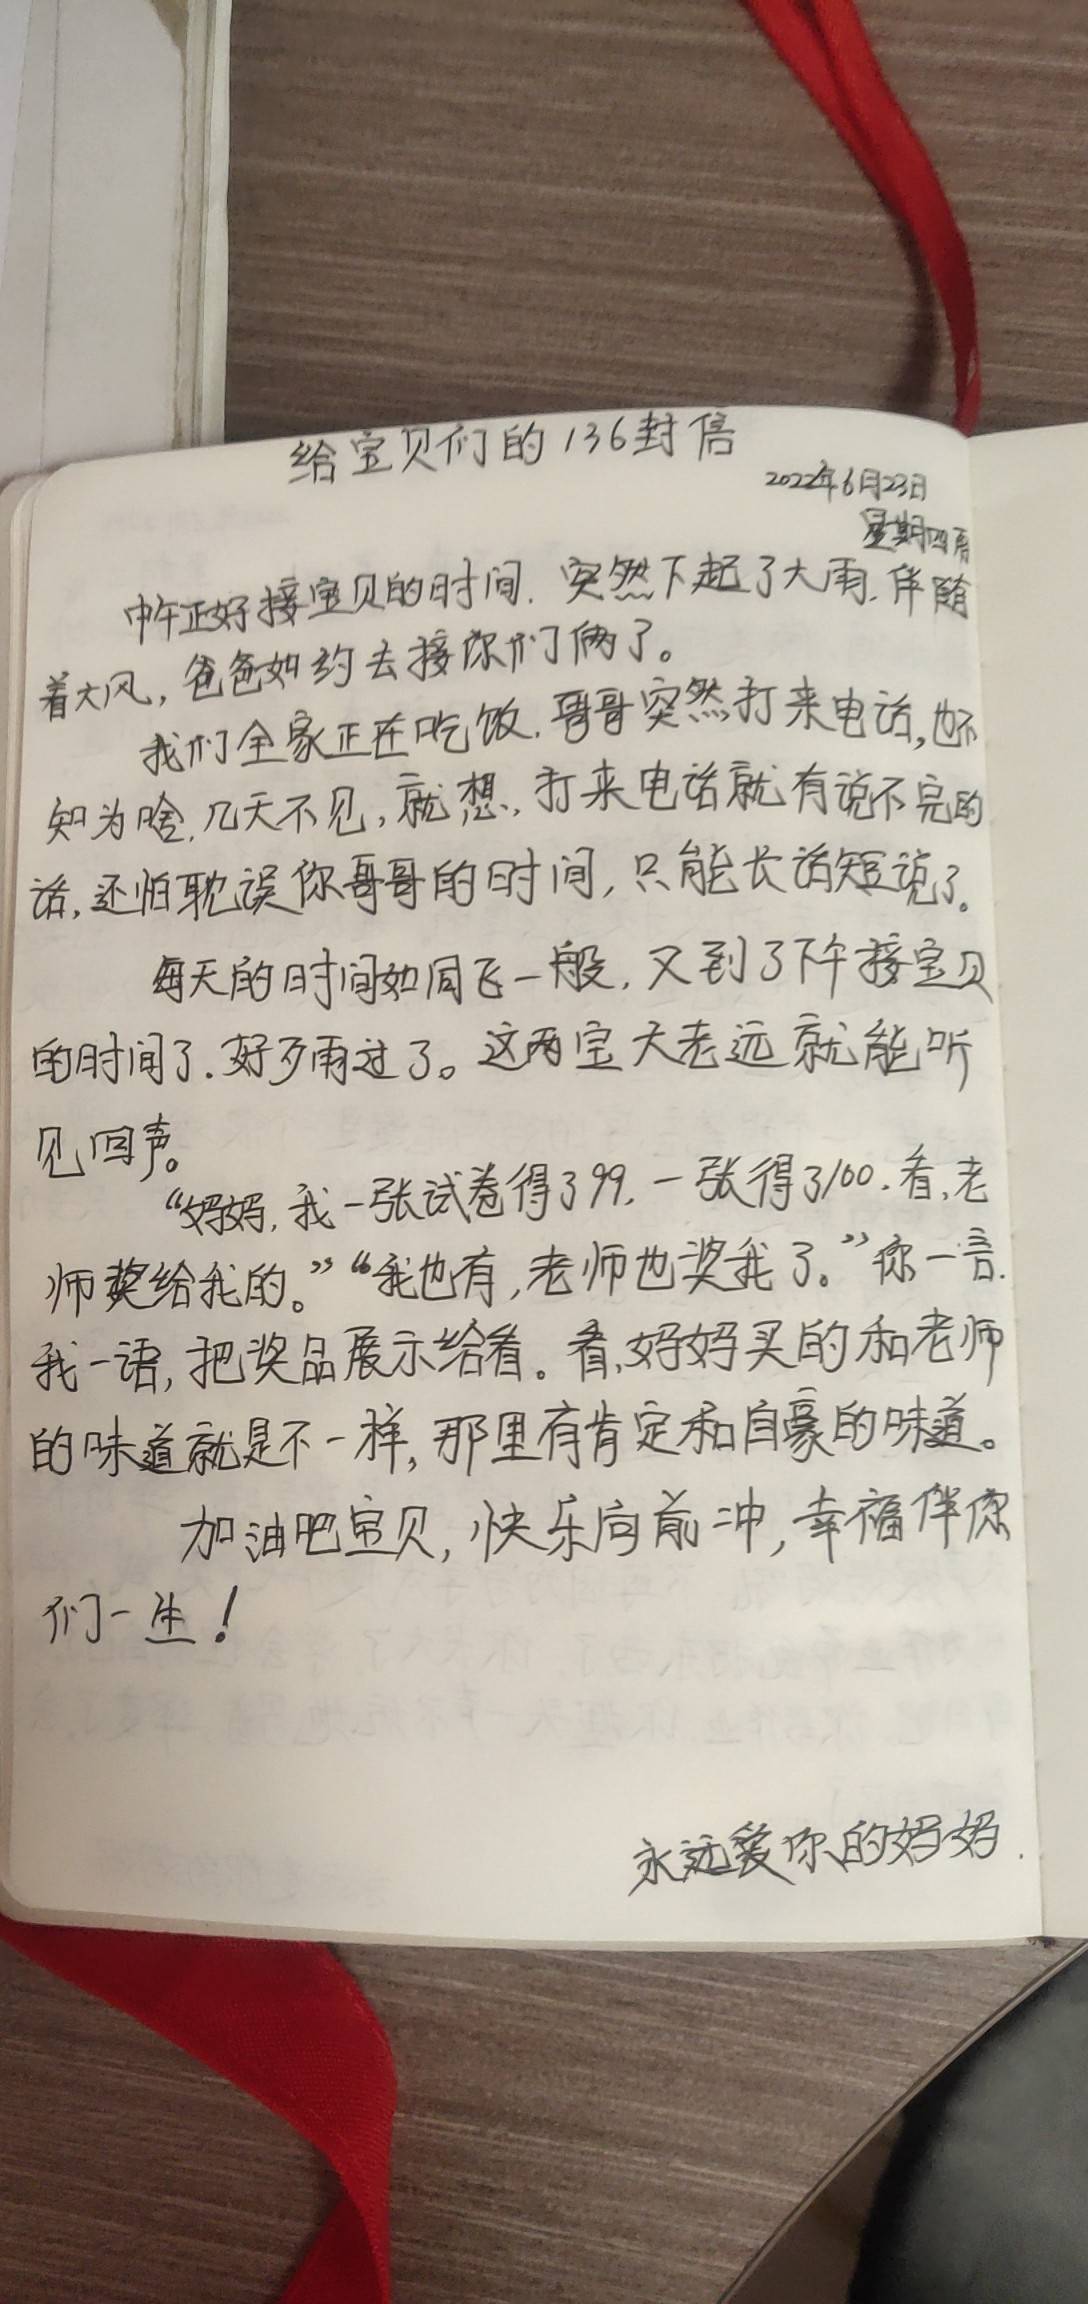 给宝贝们的136封信
2022年6月23日
星期四雨
中午正好接宝贝的时间.突然下起了大雨.伴随
着大风,爸爸如约去接你们俩了。
我们全家正在吃饭.哥哥突然打来电话,也不
知为啥.几天不见,就想.打来电话就有说不完的
话,还怕耽误你哥哥的时间,只能长话短说了。
每天的时间如同飞一般.又到了下午接宝贝
的时间了.好歹雨过了。这两宝大老远就能听
见回声。
“妈妈,我一张试卷得了99.一张得了100.看,老
师奖给我的。”“我也有,老师也奖我了。”你一言.
我一语,把奖品展示给看。看,妈妈买的和老师
的味道就是不一样,那里有肯定和自豪的味道。
加油吧宝贝,快乐向前冲,幸福伴你
们一生!
永远爱你的妈妈.